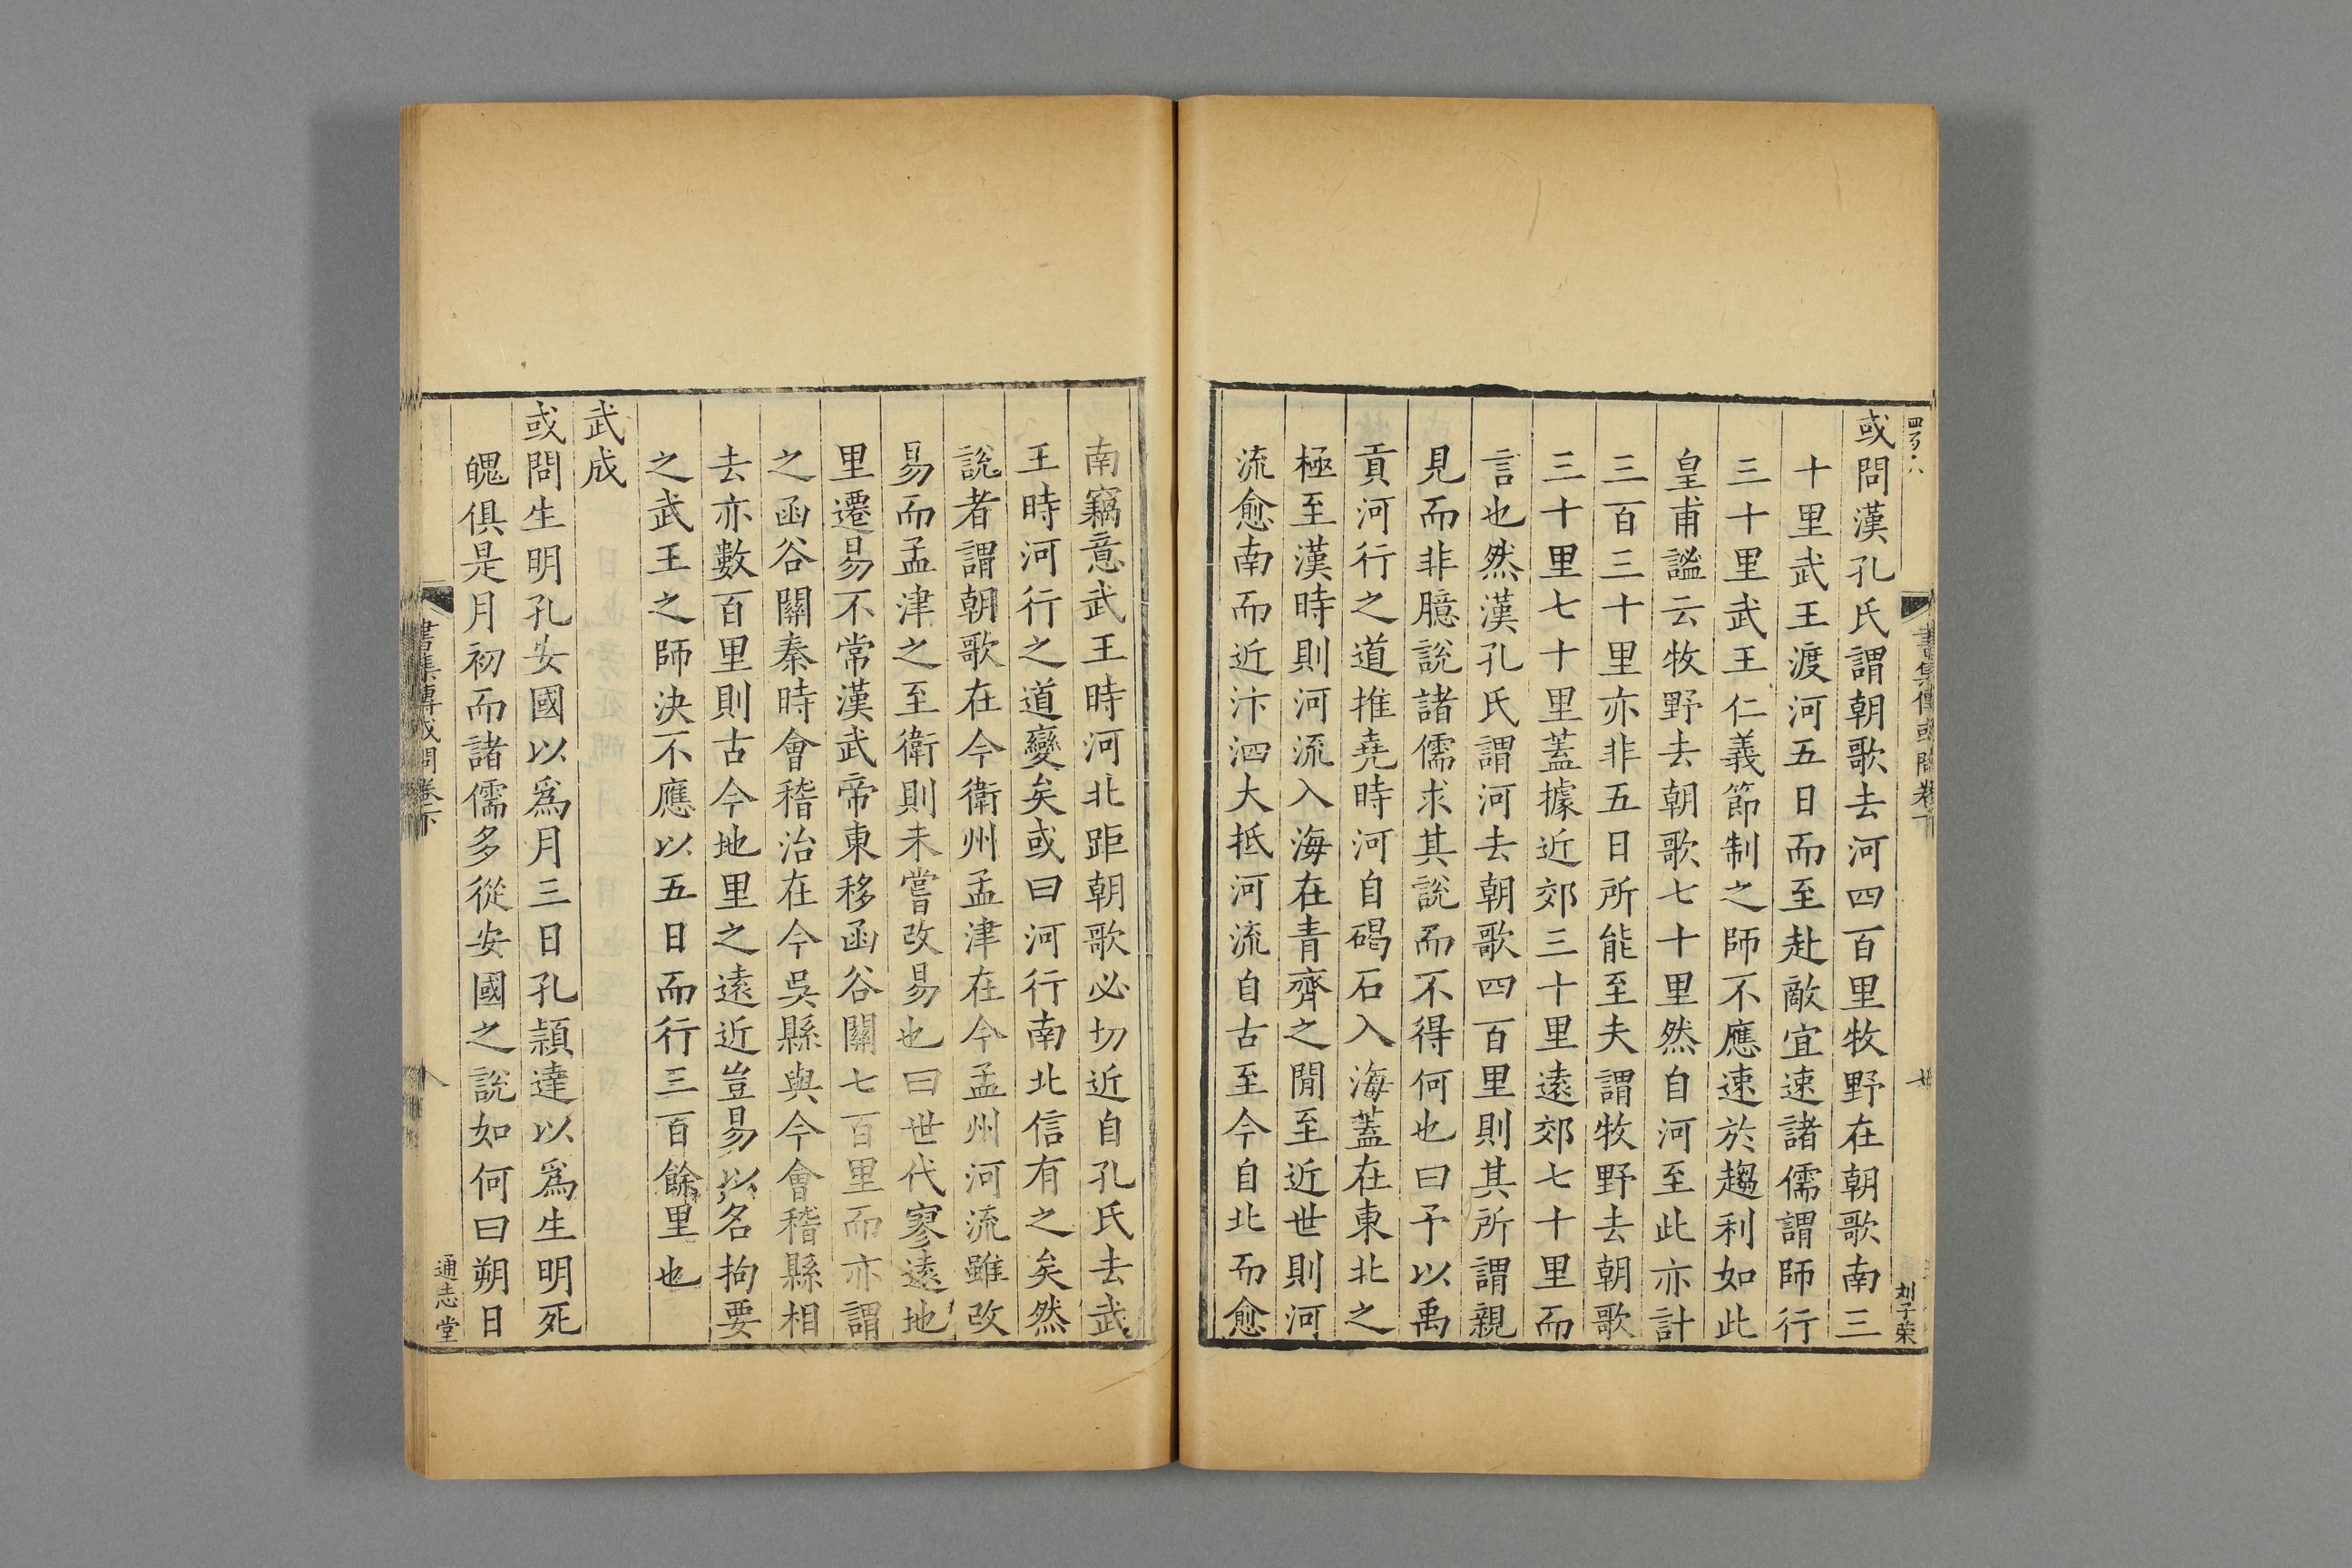 或問漢孔氏謂朝歌去河四百里牧野在朝歌南三
十里武王渡河五日而至赴敵宜速諸儒謂師行
三十里武王仁義節制之師不應速於趨利如此
皇甫謐云牧野去朝歌七十里然自河至此亦計
三百三十里亦非五日所能至夫謂牧野去朝歌
三十里七十里蓋據近郊三十里遠郊七十里而
言也然漢孔氏謂河去朝歌四百里則其所謂親
見而非臆說諸儒求其說而不得何也曰予以禹
貢河行之道推堯時河自碣石入海蓋在東北之
極至漢時則河流入海在青齊之閒至近世則河
流愈南而近汴泗大抵河流自古至今自北而愈
南竊意武王時河北距朝歌必切近自孔氏去武
王時河行之道變矣或曰河行南北信有之矣然
說者謂朝歌在今衛州孟津在今孟州河流雖改
易而孟津之至衛則未嘗改易也曰世代寥遠地
里遷易不常漢武帝東移函谷關七百里而亦謂
之函谷關秦時會稽治在今吳縣與今會稽縣相
去亦數百里則古今地里之遠近豈易以名拘要
之武王之師決不應以五日而行三百餘里也
武成
或問生明孔安國以爲月三日孔穎達以爲生明死
魄俱是月初而諸儒多從安國之說如何曰朔日
書集傳或問卷下
通志堂
書集傳或問卷下
刘子荣